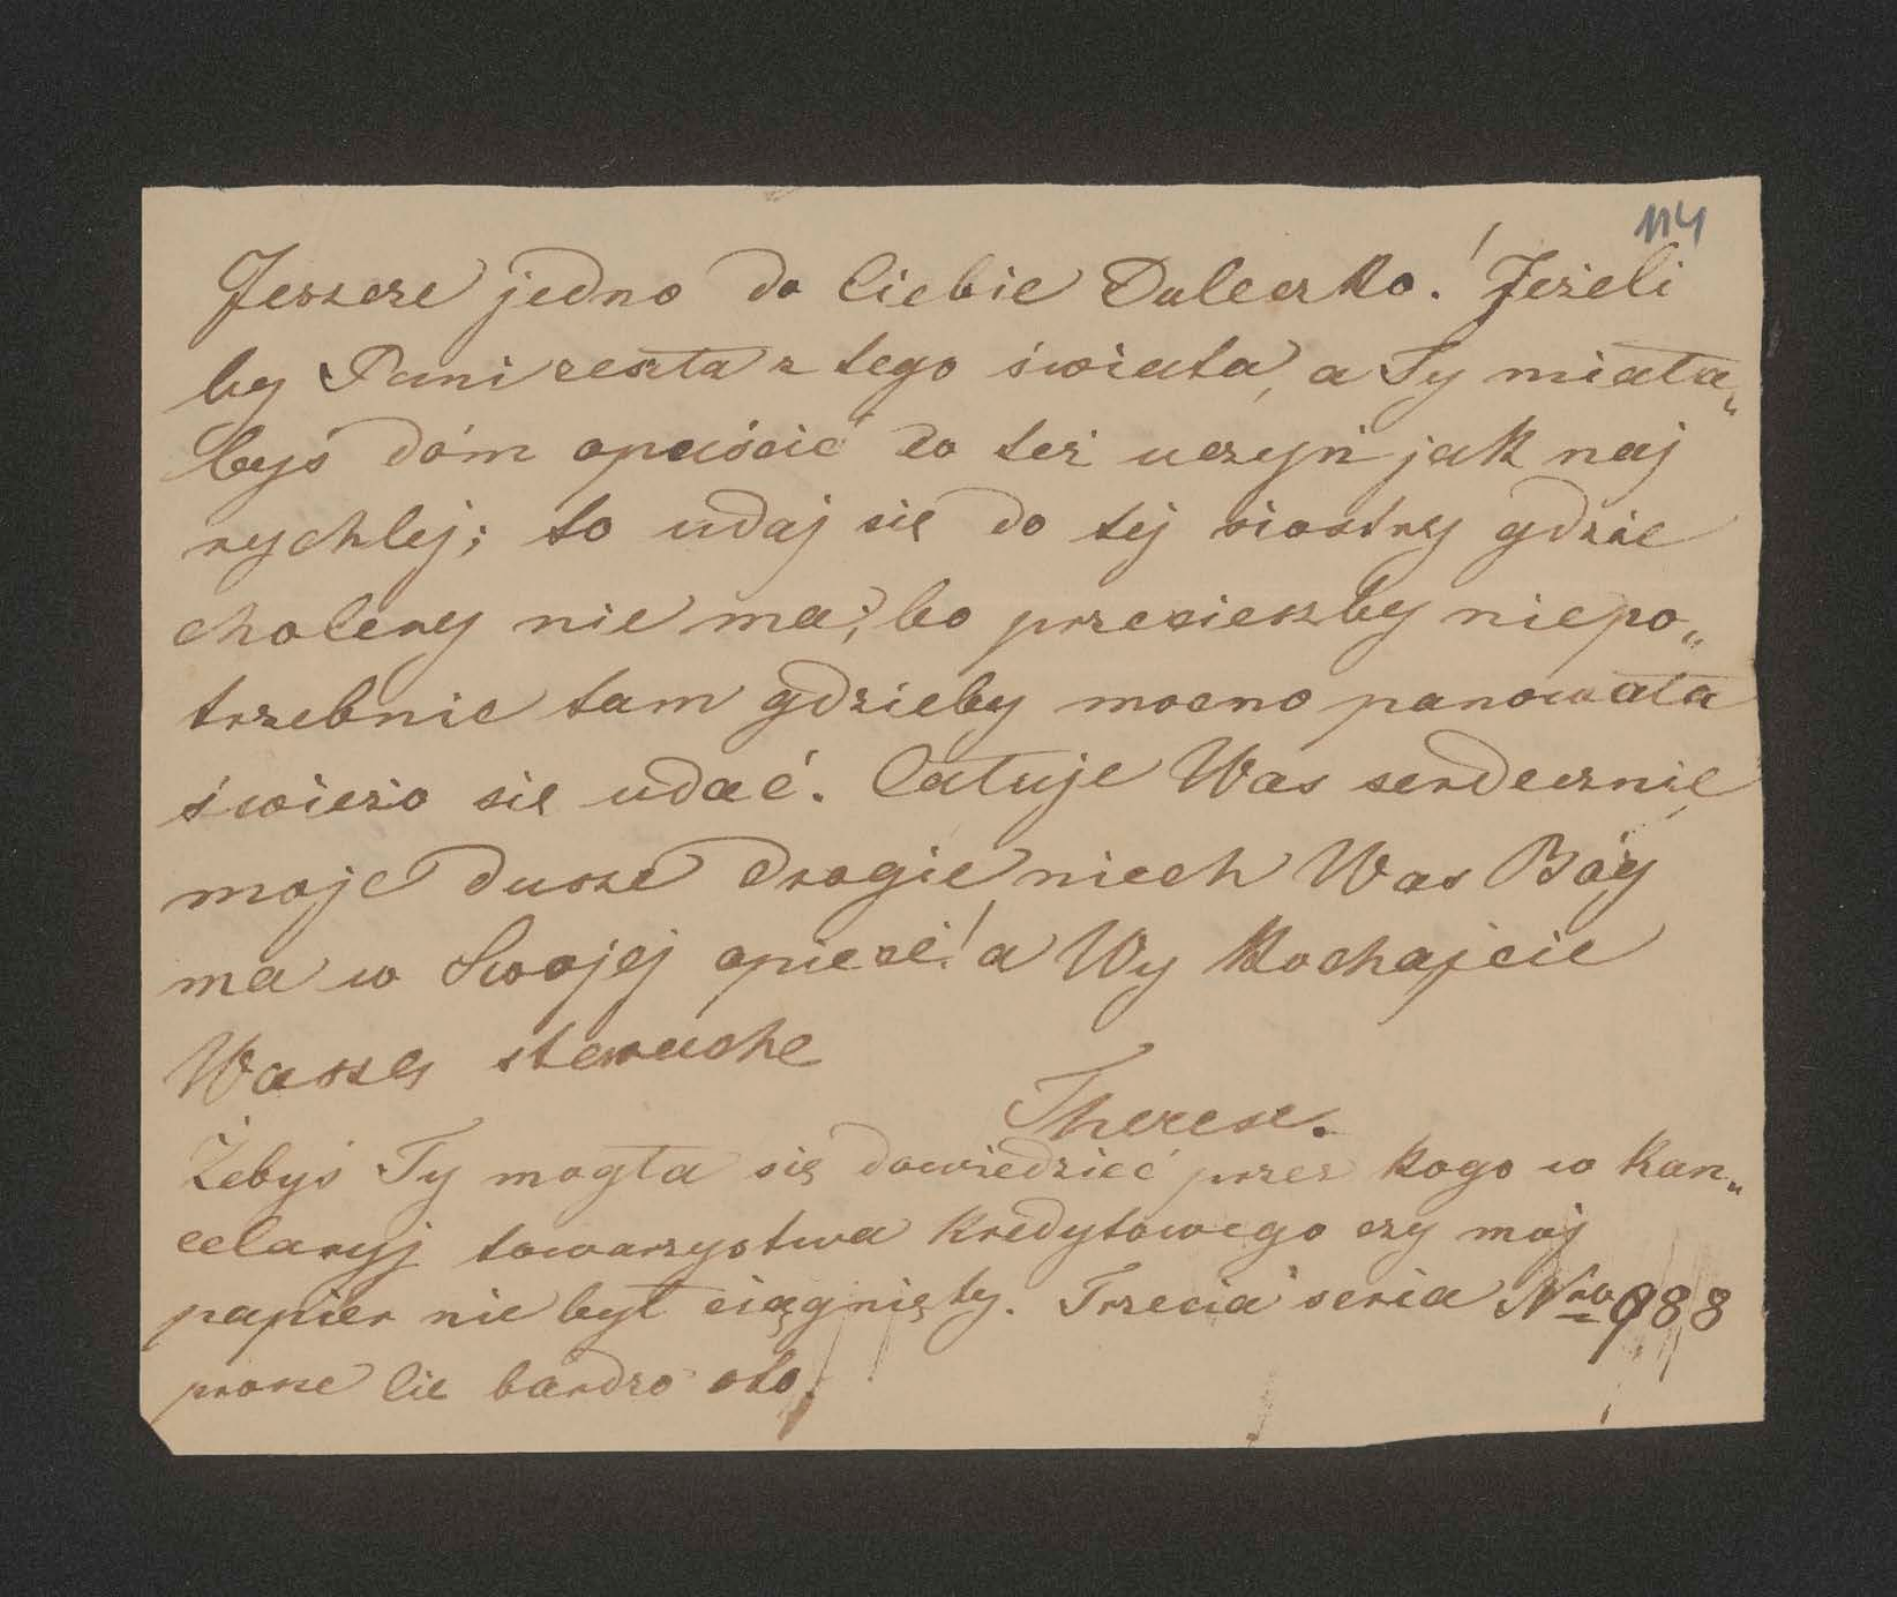 114
Jeszcze jedno do Ciebie Duleczko! Jeżeli
by Pani zeszła z tego świata, a Ty miała„
byś dóm opuścić co też uczyń jak naj
rychlej; to udaj się do tej siostry gdzie
cholery nie ma; bo przecieszby niepo„
trzebnie tam gdzieby mocno panowała
świeżo się udać. Całuje Was serdecznie
moje dusze drogie niech Was Bóg
ma w Swojej opiece! a Wy kochajcie
Waszę staruche
Therese.
Żebyś Ty mogła się dowiedzieć przez kogo w kan„
celaryj towarzystwa kredytowego czy mój
papier nie był ciągnięty. Trzecia seria Nro 988
prosze Cie bardzo oto.